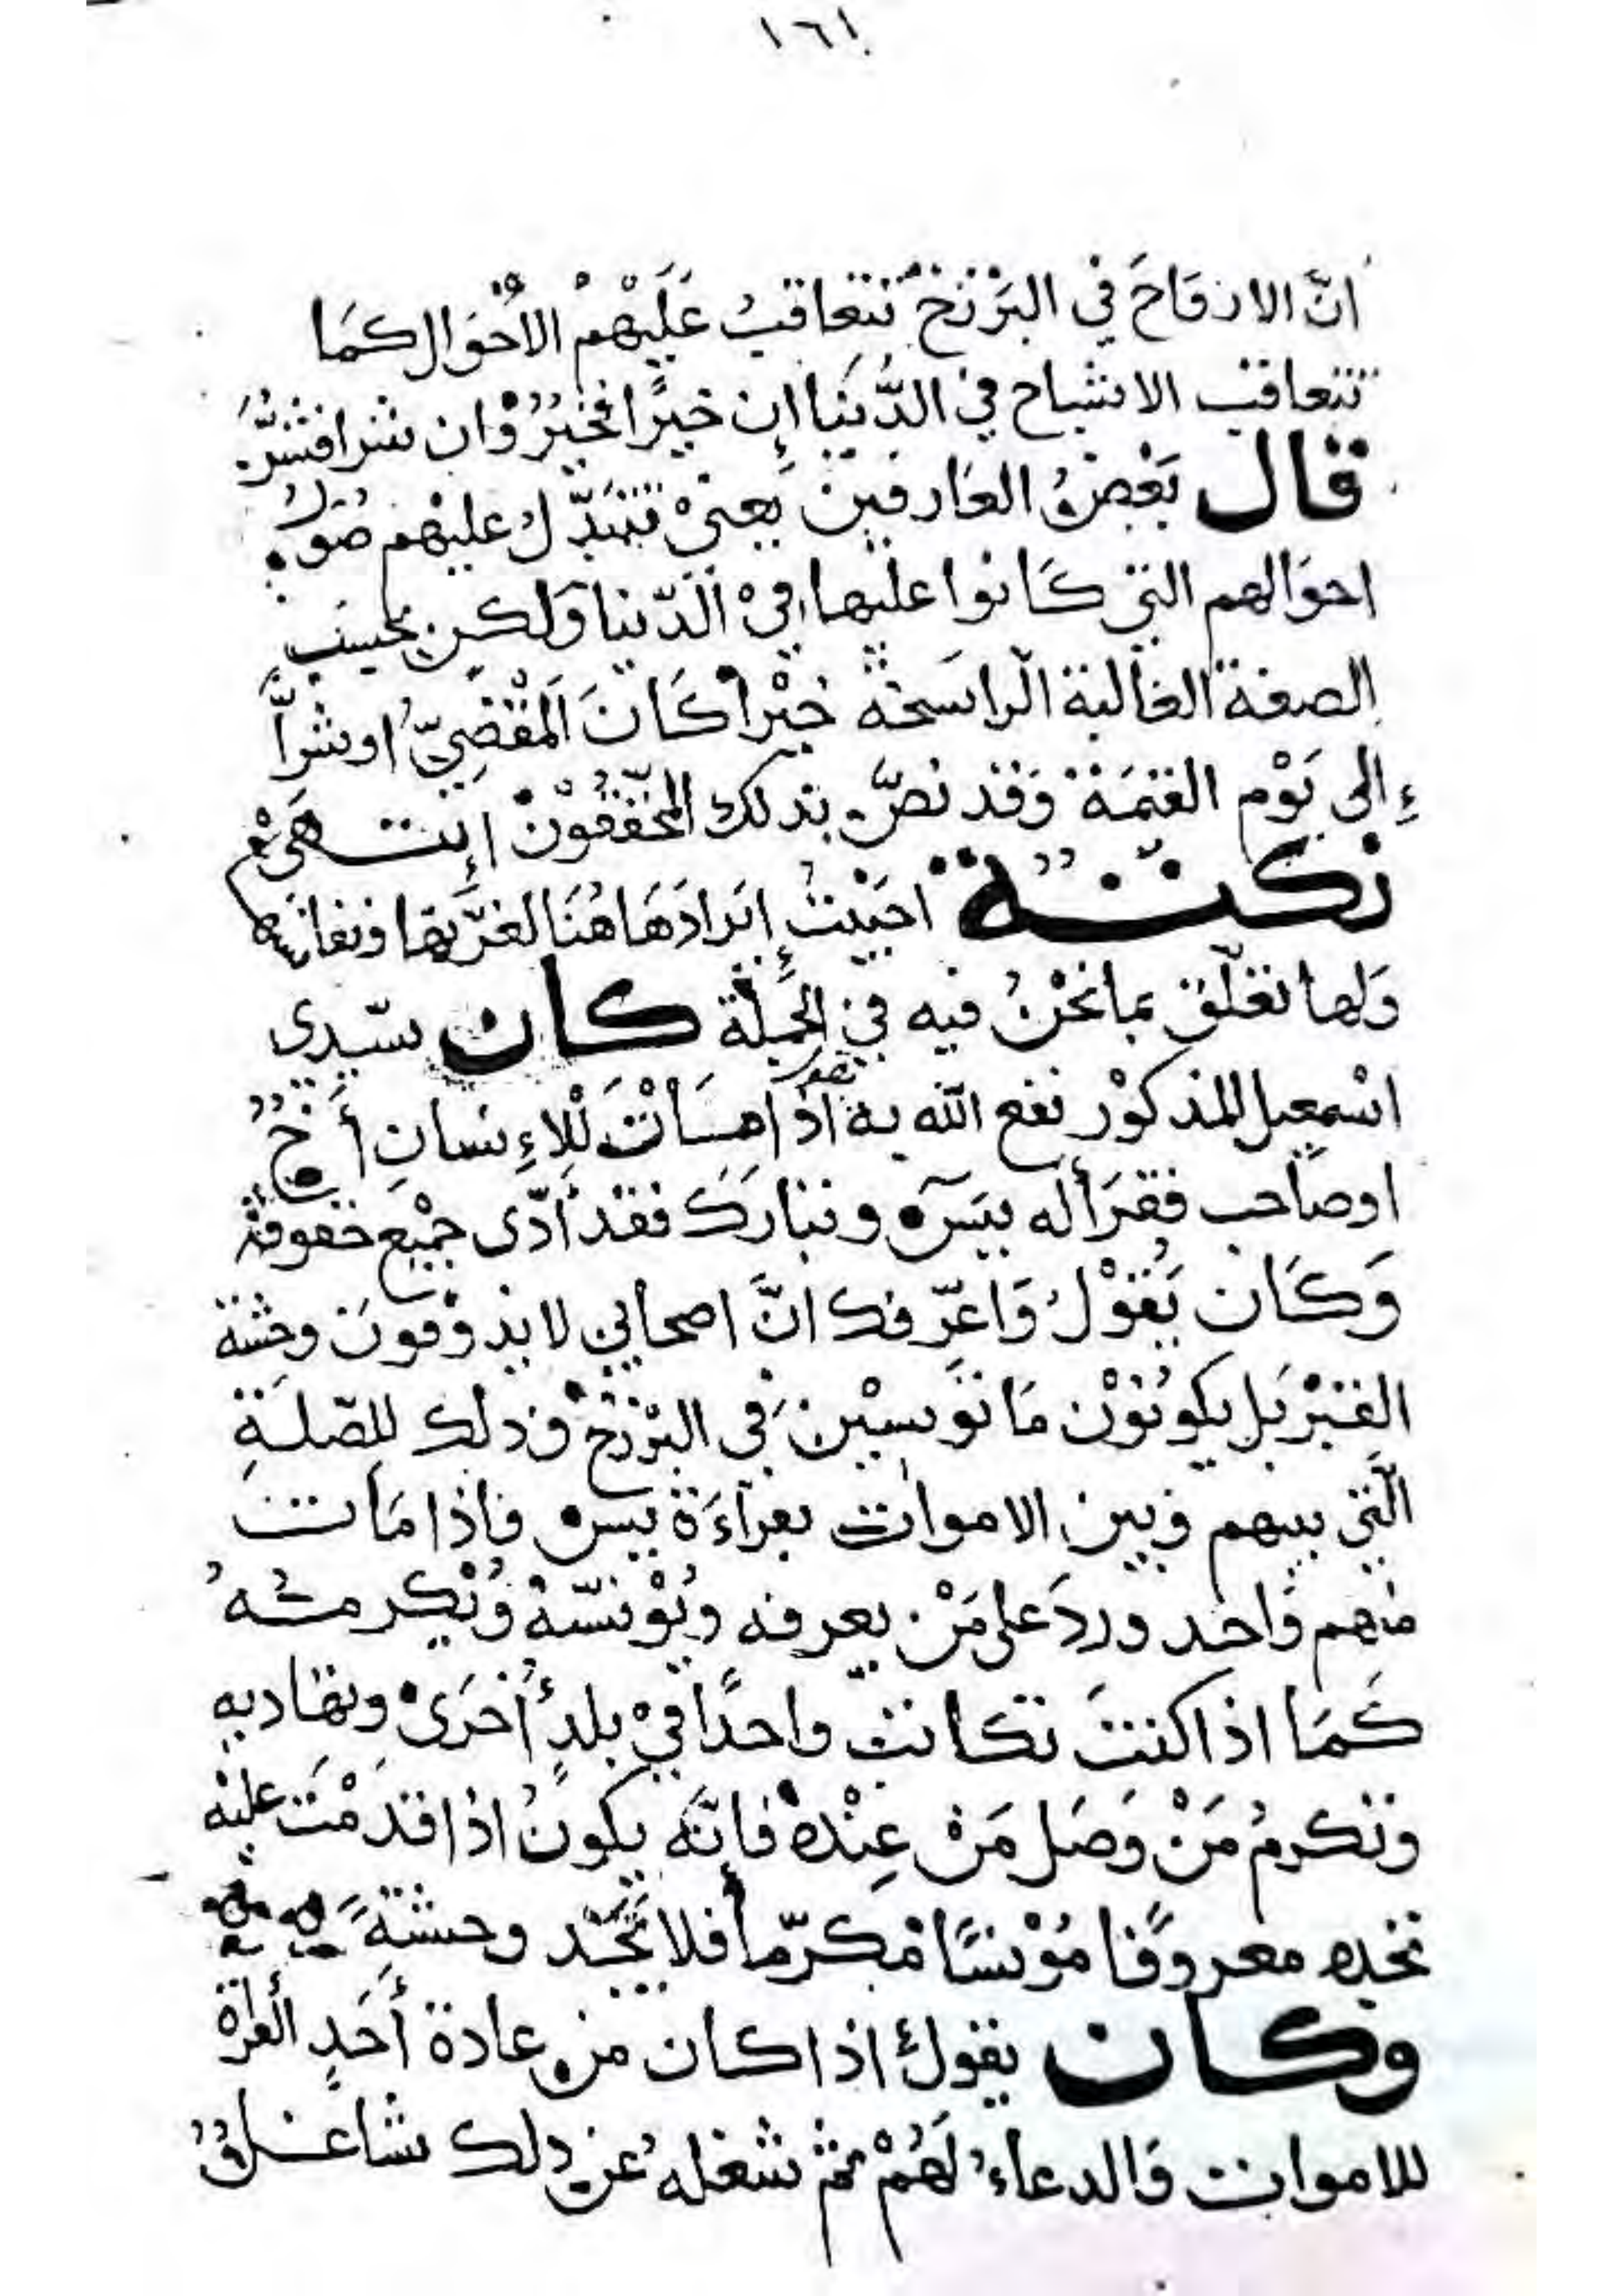 ١٦١
انَّ الارْوَاحَ في البَرْزَخ تتعاقبُ عَلَيْهِمْ الأحْوَال كمَا
تتعاقب الاشباح في الدُّنيَا إن خيرًا فخيرٌ وَان شرا فشرٌّ
قال بَعْضُ العَارفين يعنيْ تتبَدّل عليْهم صُوَرُ
احوَالهم التي كَانوا عليها فيْ الدّنيا وَلكن بحسَب
الصفة الغالبة الرّاسَخة خيْراً كَانَ المَقْضِيّ او شراً
إلى يَوْم القيٰمَة وَقد نصَّ بذلك المحَقّقُوْن إنتهَىْ
نكتة احبَبْتُ إيرادَهَا هُنَا لغرَّتها ونفاستها
وَلها تعلّق بما نَحْنُ فيه في الجُملَة كان سيّدي
اسْمعيل المذكوْر نفع الله به اذا مَاتَ لِلاءِنسانِ أخٌ
اوصَاحب فقرَأ له يسۤ وتبارَكَ فقد أدّى جمْيعَ حقوقه
وَكَان يَقوْلُ وَاعرّفك انَّ اصحابي لا يذوْقونَ وحشة
القبْر بَل يكونوْن مَانوسيْن في البرْزخ وَذلك للصّلَةِ
الّتي بينهم وَبين الاموات بقرآءَة يس فاذا مَات
منهم وَاحد وردَ على مَنْ يعرفه ويُوْنسهُ وَيُكرمُهُ
كَمَا اذا كنتَ تكاتب واحدًا فيْ بلدٍ أخرَىْ وتهَاديه
وَتكرمُ مَنْ وَصَل مَنْ عِنْدهْ فإنّه يكونُ اذا قدمْتَ عليْه
تجده معروفًا مُوْنسًا مكرّماً فلا تَجد وحشةً
وكان يقولُ اذا كان من عادة أحَدٍ القراة
للاموات وَالدعاء لَهُمْ ثمّ شغله عن ذلك شاغلٌ